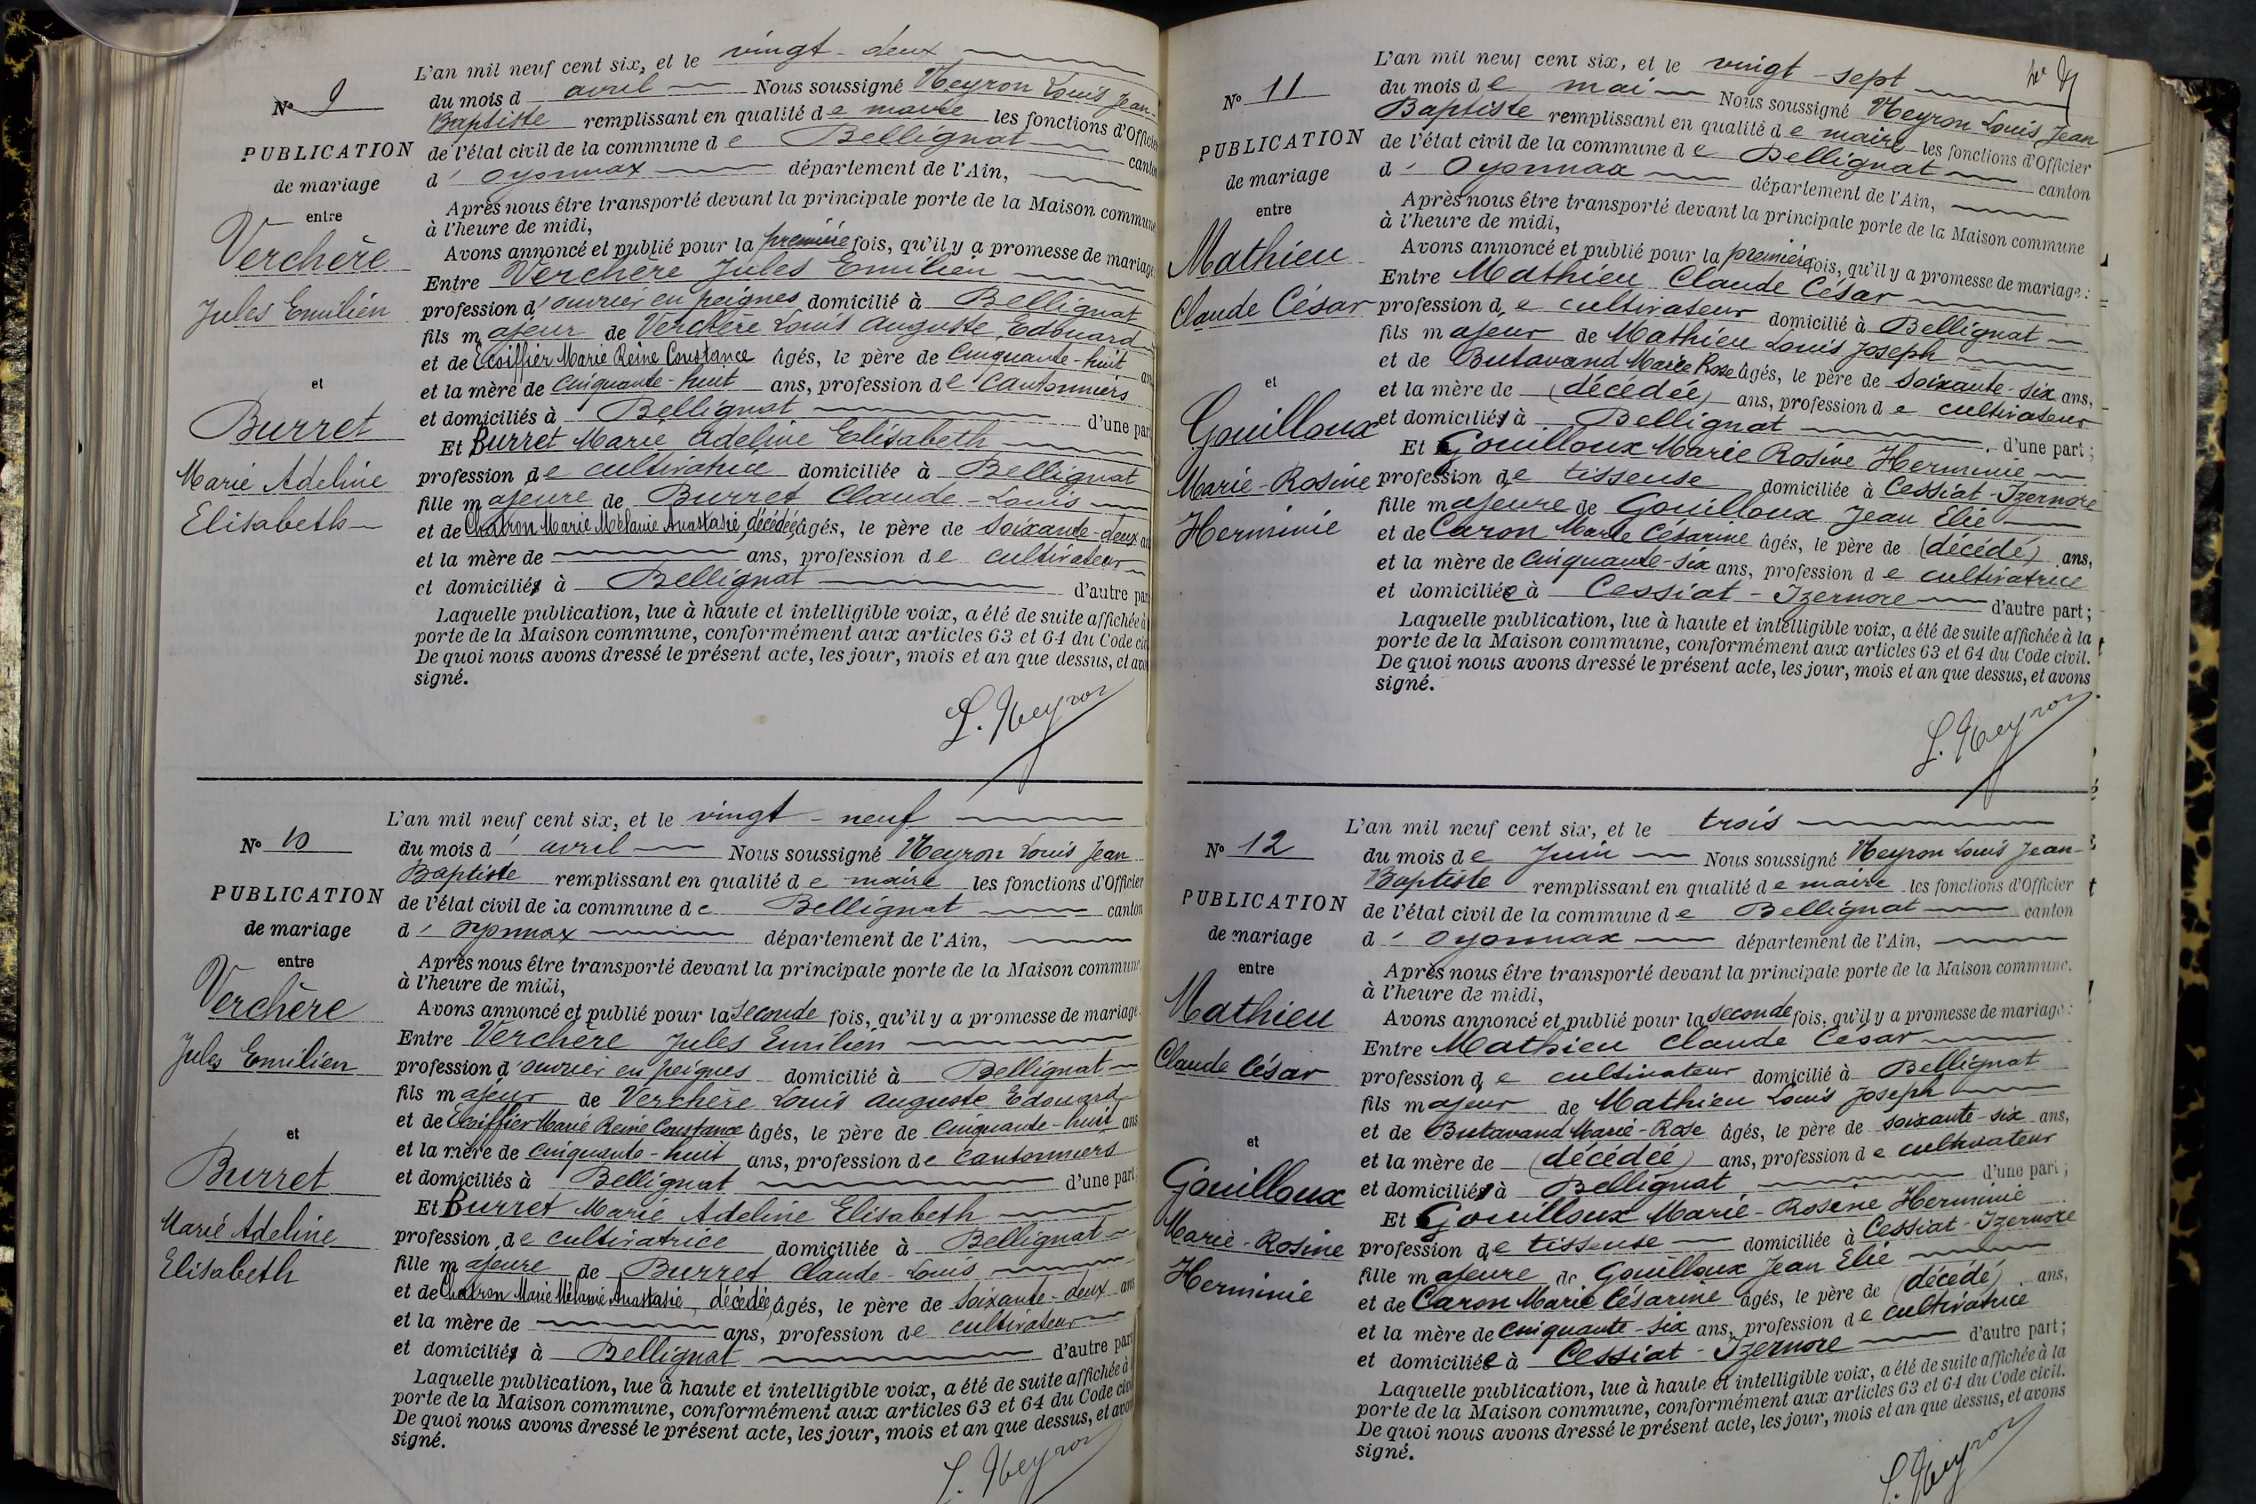 N° 9
PUBLICATION
de mariage
entre
Verchère
Jules Emilien
et
Burret
Marie Adeline
Elisabeth
L'an mil neuf cent six, et le vingt-deux
du mois d avril Nous soussigné Neyron Louis Jean-
Baptiste remplissant en qualité de maire les fonctions d'Officier
de l'état civil de la commune de Bellignat canton
d' Oyonnax département de l'Ain,
Après nous être transporté devant la principale porte de la Maison commune
à l'heure de midi,
Avons annoncé et publié pour la première fois, qu'il y a promesse de mariage
Entre Verchère Jules Emilien
profession d'ouvrier en peignes domicilié à Bellignat
fils majeur de Verchère Louis Auguste Edouard
et de Ecoiffier Marie Reine Constance âgés, le père de cinquante-huit ans
et la mère de cinquante-huit ans, profession de cantonniers
et domiciliés à Bellignat d'une part
Et Burret Marie Adeline Elisabeth
profession de cultivatrice domiciliée à Bellignat
fille majeure de Burret Claude-Louis
et de Chatron Marie Mélanie Anastasie, décédée, âgés, le père de soixante-deux an
et la mère de ans, profession de cultivateur
et domicilié à Bellignat d'autre par
Laquelle publication, lue à haute et intelligible voix, a été de suite affichée à
porte de la Maison commune, conformément aux articles 63 et 64 du Code civ
De quoi nous avons dressé le présent acte, les jour, mois et an que dessus, et avo
signé.
L. Neyron
N° 10
PUBLICATION
de mariage
entre
Verchère
Jules Emilien
et
Burret
Marie Adeline
Elisabeth
L'an mil neuf cent six, et le vingt-neuf
du mois d' avril Nous soussigné Neyron Louis Jean
Baptiste remplissant en qualité de maire les fonctions d'Officier
de l'état civil de la commune de Bellignat canton
d' Oyonnax département de l'Ain,
Après nous être transporté devant la principale porte de la Maison commune
à l'heure de midi,
Avons annoncé et publié pour la seconde fois, qu'il y a promesse de mariage
Entre Verchère Jules Emilien
profession d'ouvrier en peignes domicilié à Bellignat
fils majeur de Verchère Louis Auguste Edouard
et de Ecoiffier Marie Reine Constance âgés, le père de cinquante-huit ans
et la mère de cinquante-huit ans, profession de cantonniers
et domiciliés à Bellignat d'une part
Et Burret Marie Adeline Elisabeth
profession de cultivatrice domiciliée à Bellignat
fille majeure de Burret Claude-Louis
et de Chatron Marie Mélanie Anastasie, décédée, âgés, le père de soixante-deux ans
et la mère de ans, profession de cultivateur
et domicilié à Bellignat d'autre part
Laquelle publication, lue à haute et intelligible voix, a été de suite affichée à
porte de la Maison commune, conformément aux articles 63 et 64 du Code civi
De quoi nous avons dressé le présent acte, les jour, mois et an que dessus, et avon
signé.
L. Neyron
N° 11
PUBLICATION
de mariage
entre
Mathieu
Claude César
et
Gouilloux
Marie-Rosine
Herminie
L'an mil neuf cent six, et le vingt-sept
du mois de mai Nous soussigné Neyron Louis Jean
Baptiste remplissant en qualité de maire les fonctions d'Officier
de l'état civil de la commune de Bellignat canton
d' Oyonnax département de l'Ain,
Après nous être transporté devant la principale porte de la Maison commune
à l'heure de midi,
Avons annoncé et publié pour la première fois, qu'il y a promesse de mariage :
Entre Mathieu Claude César
profession de cultivateur domicilié à Bellignat
fils majeur de Mathieu Louis Joseph
et de Butavand Marie Rose âgés, le père de soixante-six ans,
et la mère de (décédée) ans, profession de cultivateur
et domicilié à Bellignat d'une part ;
Et Gouilloux Marie Rosine Herminie
profession de tisseuse domiciliée à Cessiat-Izernore
fille majeure de Gouilloux Jean Elie
et de Caron Marie Césarine âgés, le père de (décédé) ans,
et la mère de cinquante-six ans, profession de cultivatrice
et domiciliée à Cessiat-Izernore d'autre part ;
Laquelle publication, lue à haute et intelligible voix, a été de suite affichée à la
porte de la Maison commune, conformément aux articles 63 et 64 du Code civil.
De quoi nous avons dressé le présent acte, les jour, mois et an que dessus, et avons
signé.
L. Neyron
N° 12
PUBLICATION
de mariage
entre
Mathieu
Claude César
et
Gouilloux
Marie-Rosine
Herminie
L'an mil neuf cent six, et le trois
du mois de Juin Nous soussigné Neyron Louis Jean-
Baptiste remplissant en qualité de maire les fonctions d'Officier
de l'état civil de la commune de Bellignat canton
d' Oyonnax département de l'Ain,
Après nous être transporté devant la principale porte de la Maison commune,
à l'heure de midi,
Avons annoncé et publié pour la seconde fois, qu'il y a promesse de mariage :
Entre Mathieu Claude César
profession de cultivateur domicilié à Bellignat
fils majeur de Mathieu Louis Joseph
et de Butavand Marie-Rose âgés, le père de soixante-six ans,
et la mère de (décédée) ans, profession de cultivateur
et domicilié à Bellignat d'une part ;
Et Gouilloux Marie-Rosine Herminie
profession de tisseuse domiciliée à Cessiat-Izernore
fille majeure de Gouilloux Jean Elie
et de Caron Marie Césarine âgés, le père de (décédé) ans,
et la mère de cinquante-six ans, profession de cultivatrice
et domiciliée à Cessiat-Izernore d'autre part ;
Laquelle publication, lue à haute et intelligible voix, a été de suite affichée à la
porte de la Maison commune, conformément aux articles 63 et 64 du Code civil.
De quoi nous avons dressé le présent acte, les jour, mois et an que dessus, et avons
signé.
L. Neyron